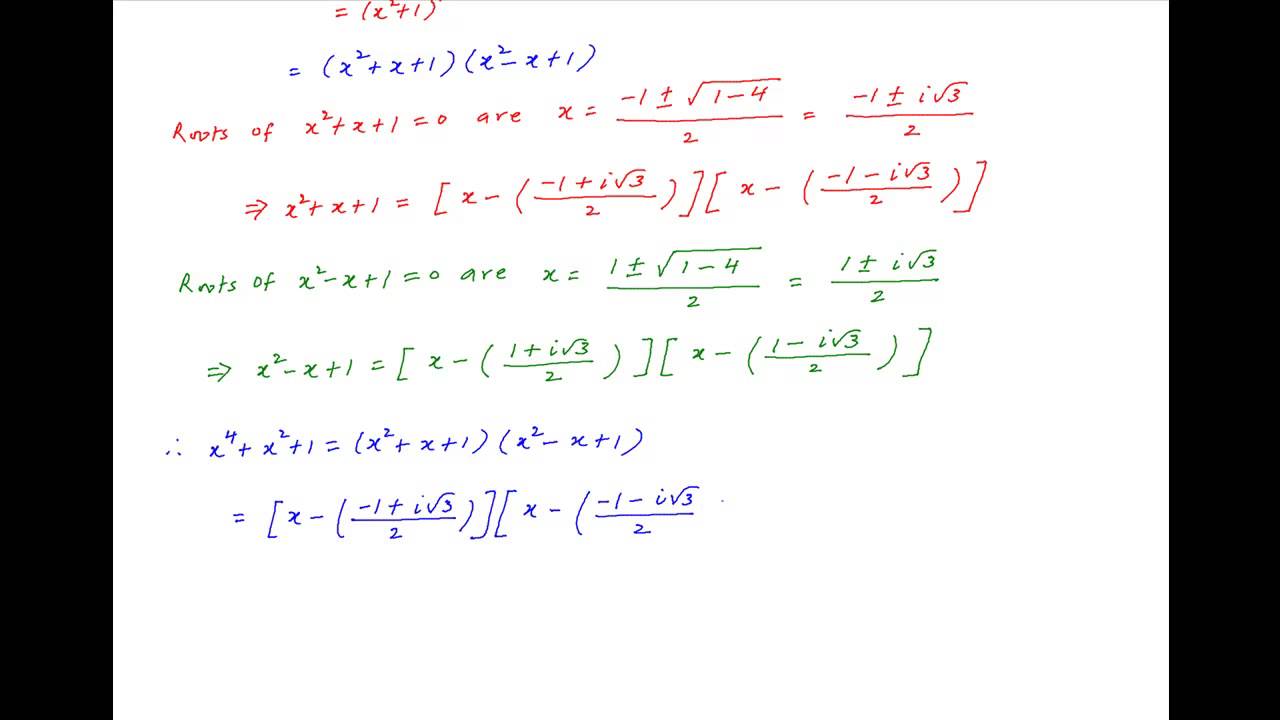 = (x²+1)
= (x² + x + 1) (x² - x + 1)
Roots of x² + x + 1 = 0 are x = (-1 ± √(1 - 4))/2 = (-1 ± i√3)/2
⇒ x² + x + 1 = [ x - ((-1 + i√3)/2) ] [ x - ((-1 - i√3)/2) ]
Roots of x² - x + 1 = 0 are x = (1 ± √(1 - 4))/2 = (1 ± i√3)/2
⇒ x² - x + 1 = [ x - ((1 + i√3)/2) ] [ x - ((1 - i√3)/2) ]
∴ x⁴ + x² + 1 = (x² + x + 1) (x² - x + 1)
= [ x - ((-1 + i√3)/2) ] [ x - ((-1 - i√3)/2